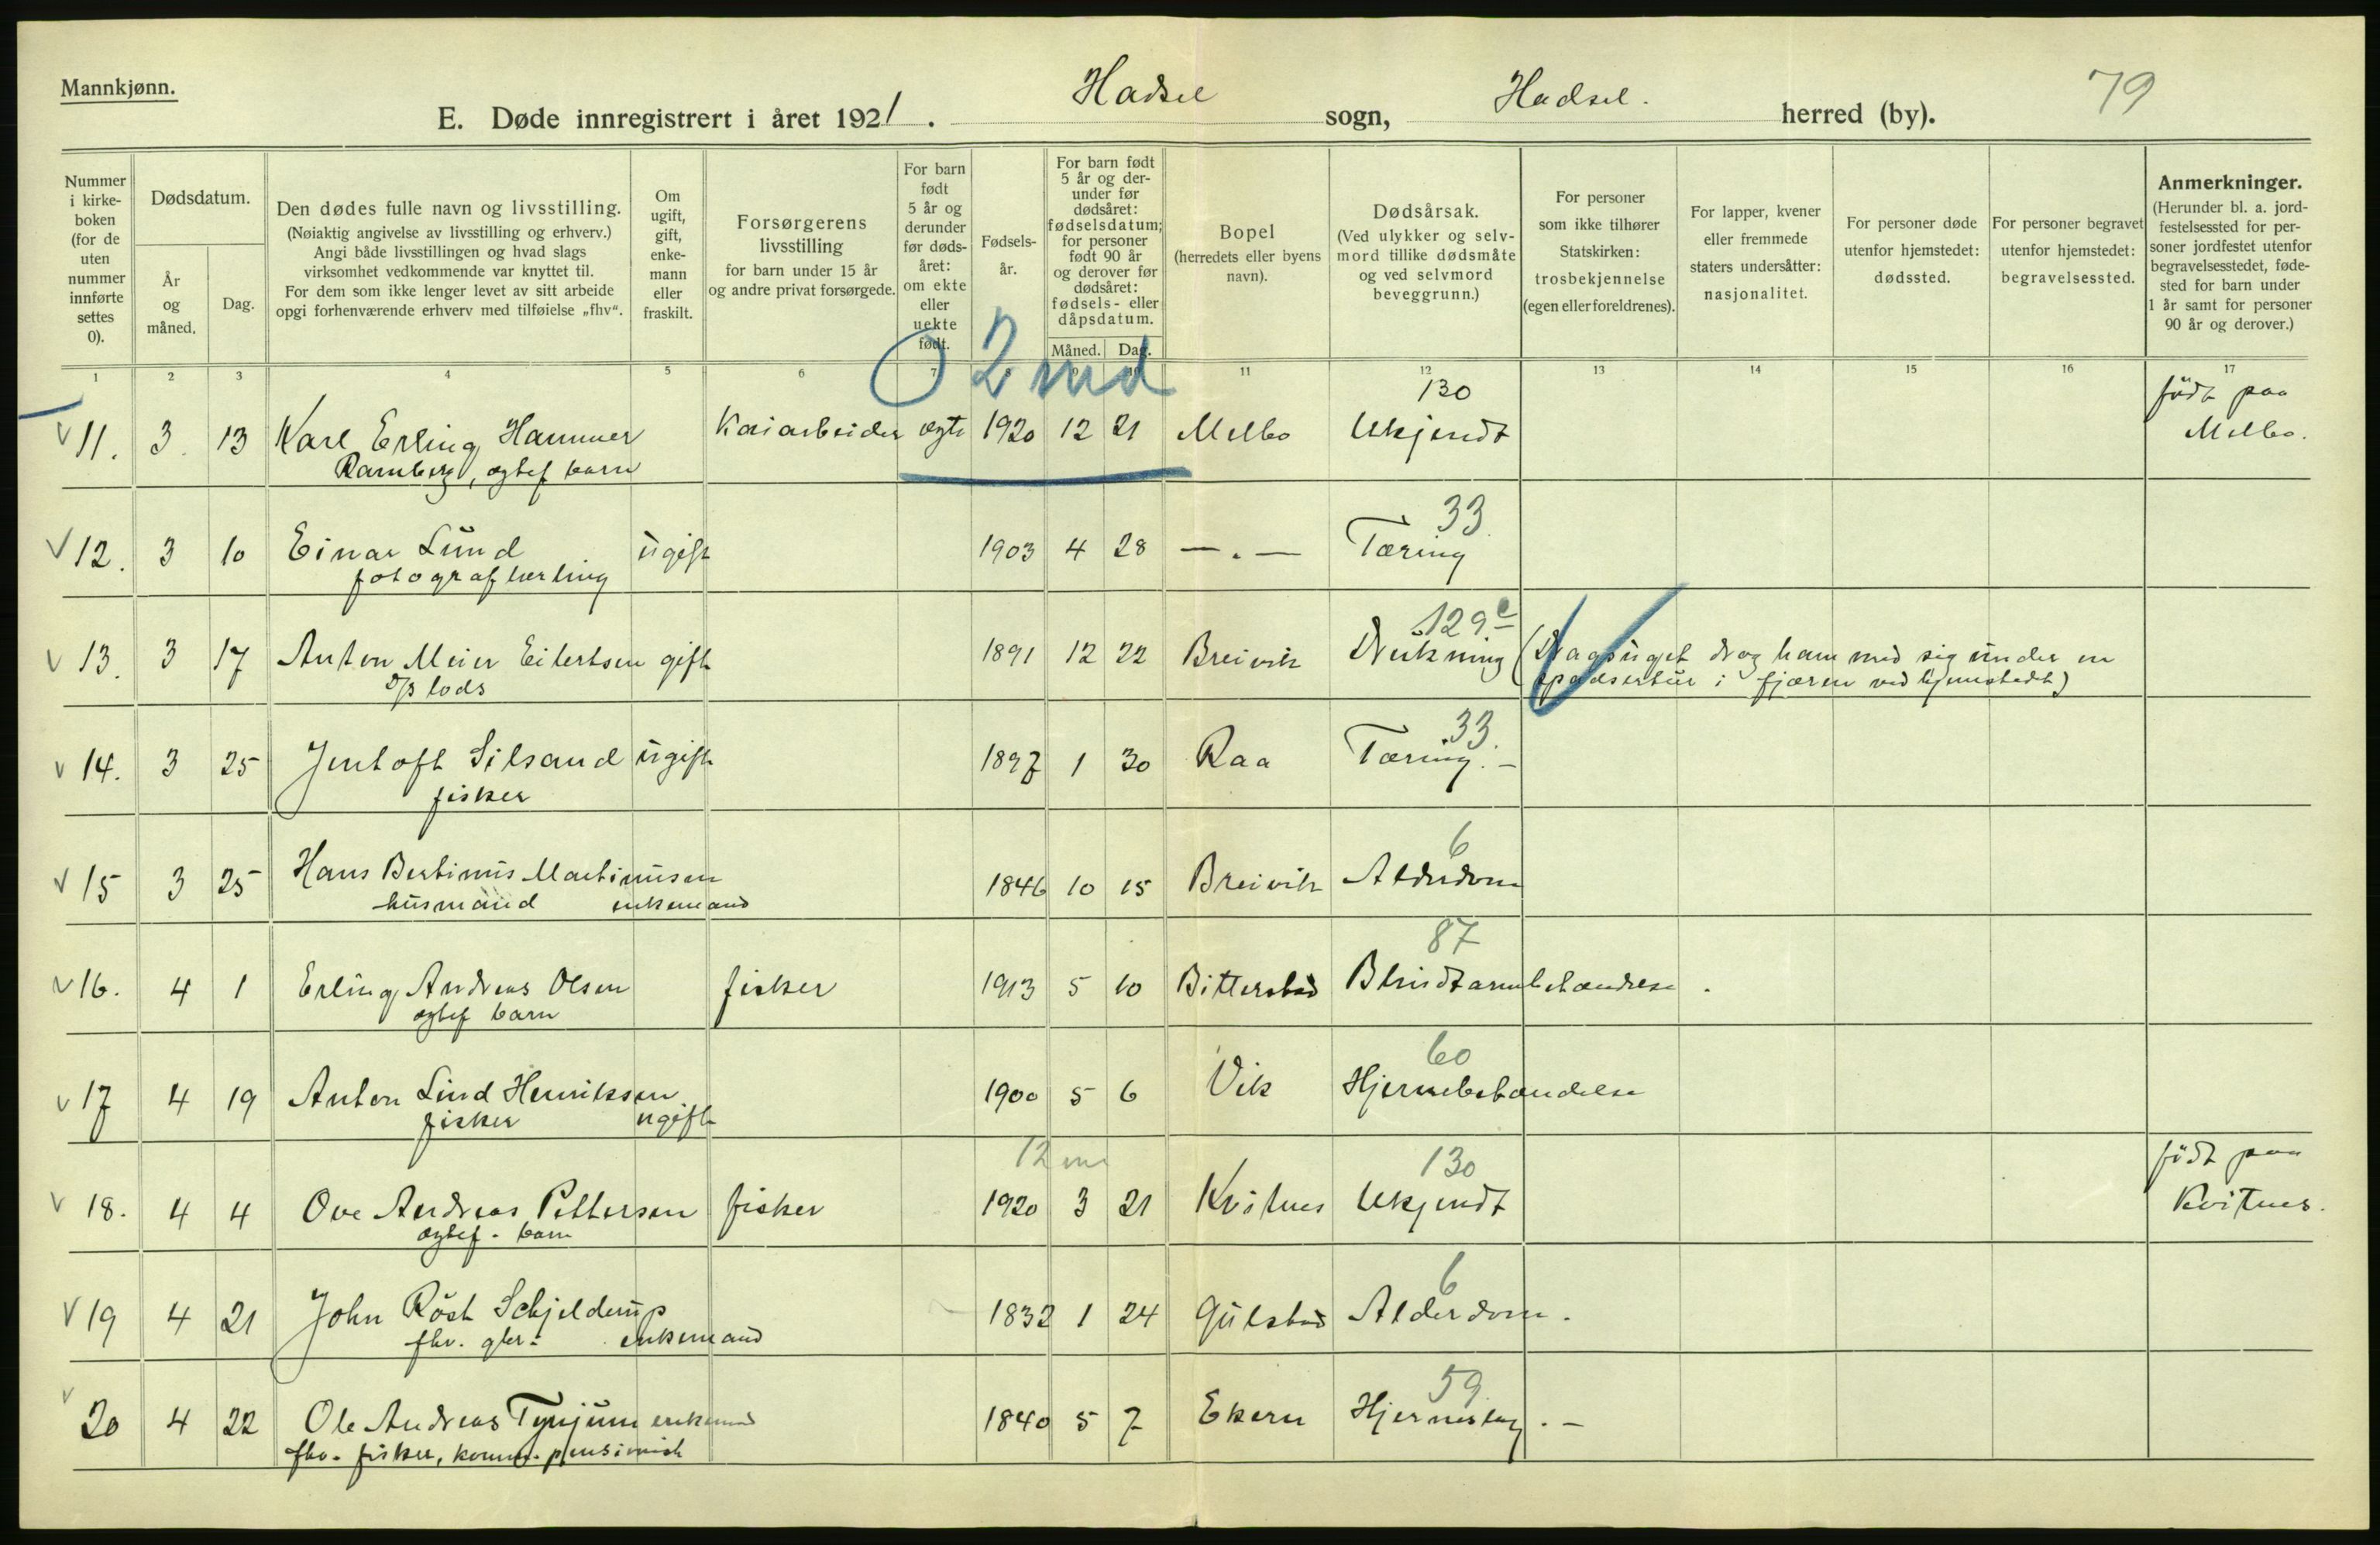 Mannkjønn.
E. Døde innregistrert i året 1921. Hadsel sogn, Hadsel. herred (by). 79
Nummer i kirke-boken (for de uten nummer innførte settes 0).
Dødsdatum.
År og måned.
Dag.
Den dødes fulle navn og livsstilling.
(Nøiaktig angivelse av livsstilling og erhverv.)
Angi både livsstillingen og hvad slags
virksomhet vedkommende var knyttet til.
For dem som ikke lenger levet av sitt arbeide
opgi forhenværende erhverv med tilføielse „fhv“.
Om ugift, gift, enke-mann eller fraskilt.
Forsørgerens livsstilling
for barn under 15 år
og andre privat forsørgede.
For barn født 5 år og derunder før døds-året: om ekte eller uekte født.
Fødsels-år.
For barn født 5 år og der-under før dødsåret: fødselsdatum; for personer født 90 år og derover før dødsåret: fødsels- eller dåpsdatum.
Måned. Dag.
Bopel
(herredets eller byens navn).
Dødsårsak.
(Ved ulykker og selv-mord tillike dødsmåte og ved selvmord beveggrunn.)
For personer som ikke tilhører Statskirken: trosbekjennelse (egen eller foreldrenes).
For lapper, kvener eller fremmede staters undersåtter: nasjonalitet.
For personer døde utenfor hjemstedet: dødssted.
For personer begravet utenfor hjemstedet: begravelsessted.
Anmerkninger.
(Herunder bl. a. jord-festelsessted for per-soner jordfestet utenfor begravelsesstedet, føde-sted for barn under 1 år samt for personer 90 år og derover.)
1 2 3 4 5 6 7 8 9 10 11 12 13 14 15 16 17
2 md
130
født paa
11. 3. 13 Karl Erling Hammer Kaiarbeider ægte 1920 12 21 Melbo Ukjendt Melbo.
Ramberg, ægtef barn
33
12. 3 10 Einar Lund ugift 1903 4 28 —.— Tæring
fotograflærling
129e
13. 3 17 Anton Meier Eilertsen gift 1891 12 22 Breivik Drukning (Dragsuget drog ham med sig under en
D/S lods spadsertur i fjæren ved hjemstedet)
33.
14. 3 25 Jentoft Silsand ugift 1897 1 30 Raa Tæring. –
fisker
6
15 3 25 Hans Bertinus Martinusen 1846 10 15 Breivik Alderdom
husmand enkemand
87
16. 4 1 Erling Andreas Olsen fisker 1913 5 10 Bitterstad Blindtarmbetændelse.
ægtef barn
60
17 4 19 Anton Lind Henriksen 1900 5 6 Vik Hjernebetændelse
fisker ugift
12 m
130
født paa
18. 4 4 Ove Andreas Pettersen fisker 1920 3 21 Kvitnes Ukjendt Kvitnes.
ægtef. barn
6
19 4 21 John Röst Schjelderup 1832 1 24 Gulstad Alderdom.
fhv. gbr. enkemand
59.
20 4 22 Ole Andreas Tynjum enkemand 1840 5 7 Ekern Hjerneslag. –
fhv. fisker, komm. pensionist